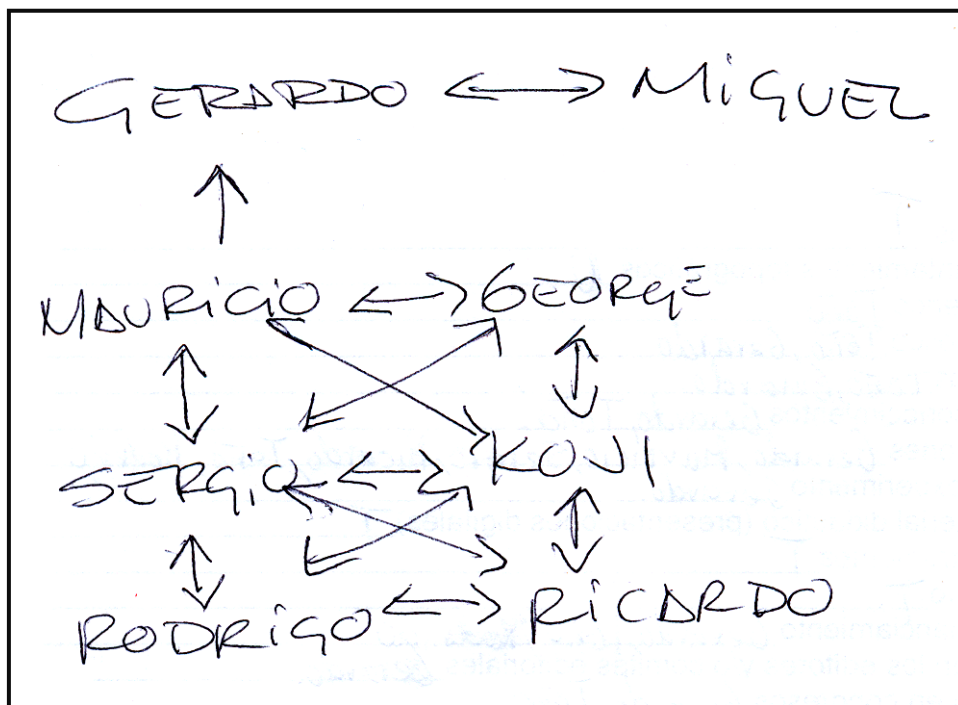 GERARDO ↔ MIGUEL
MAURICIO ↔ GEORGE
SERGIO ↔ KONI
RODRIGO ↔ RICARDO